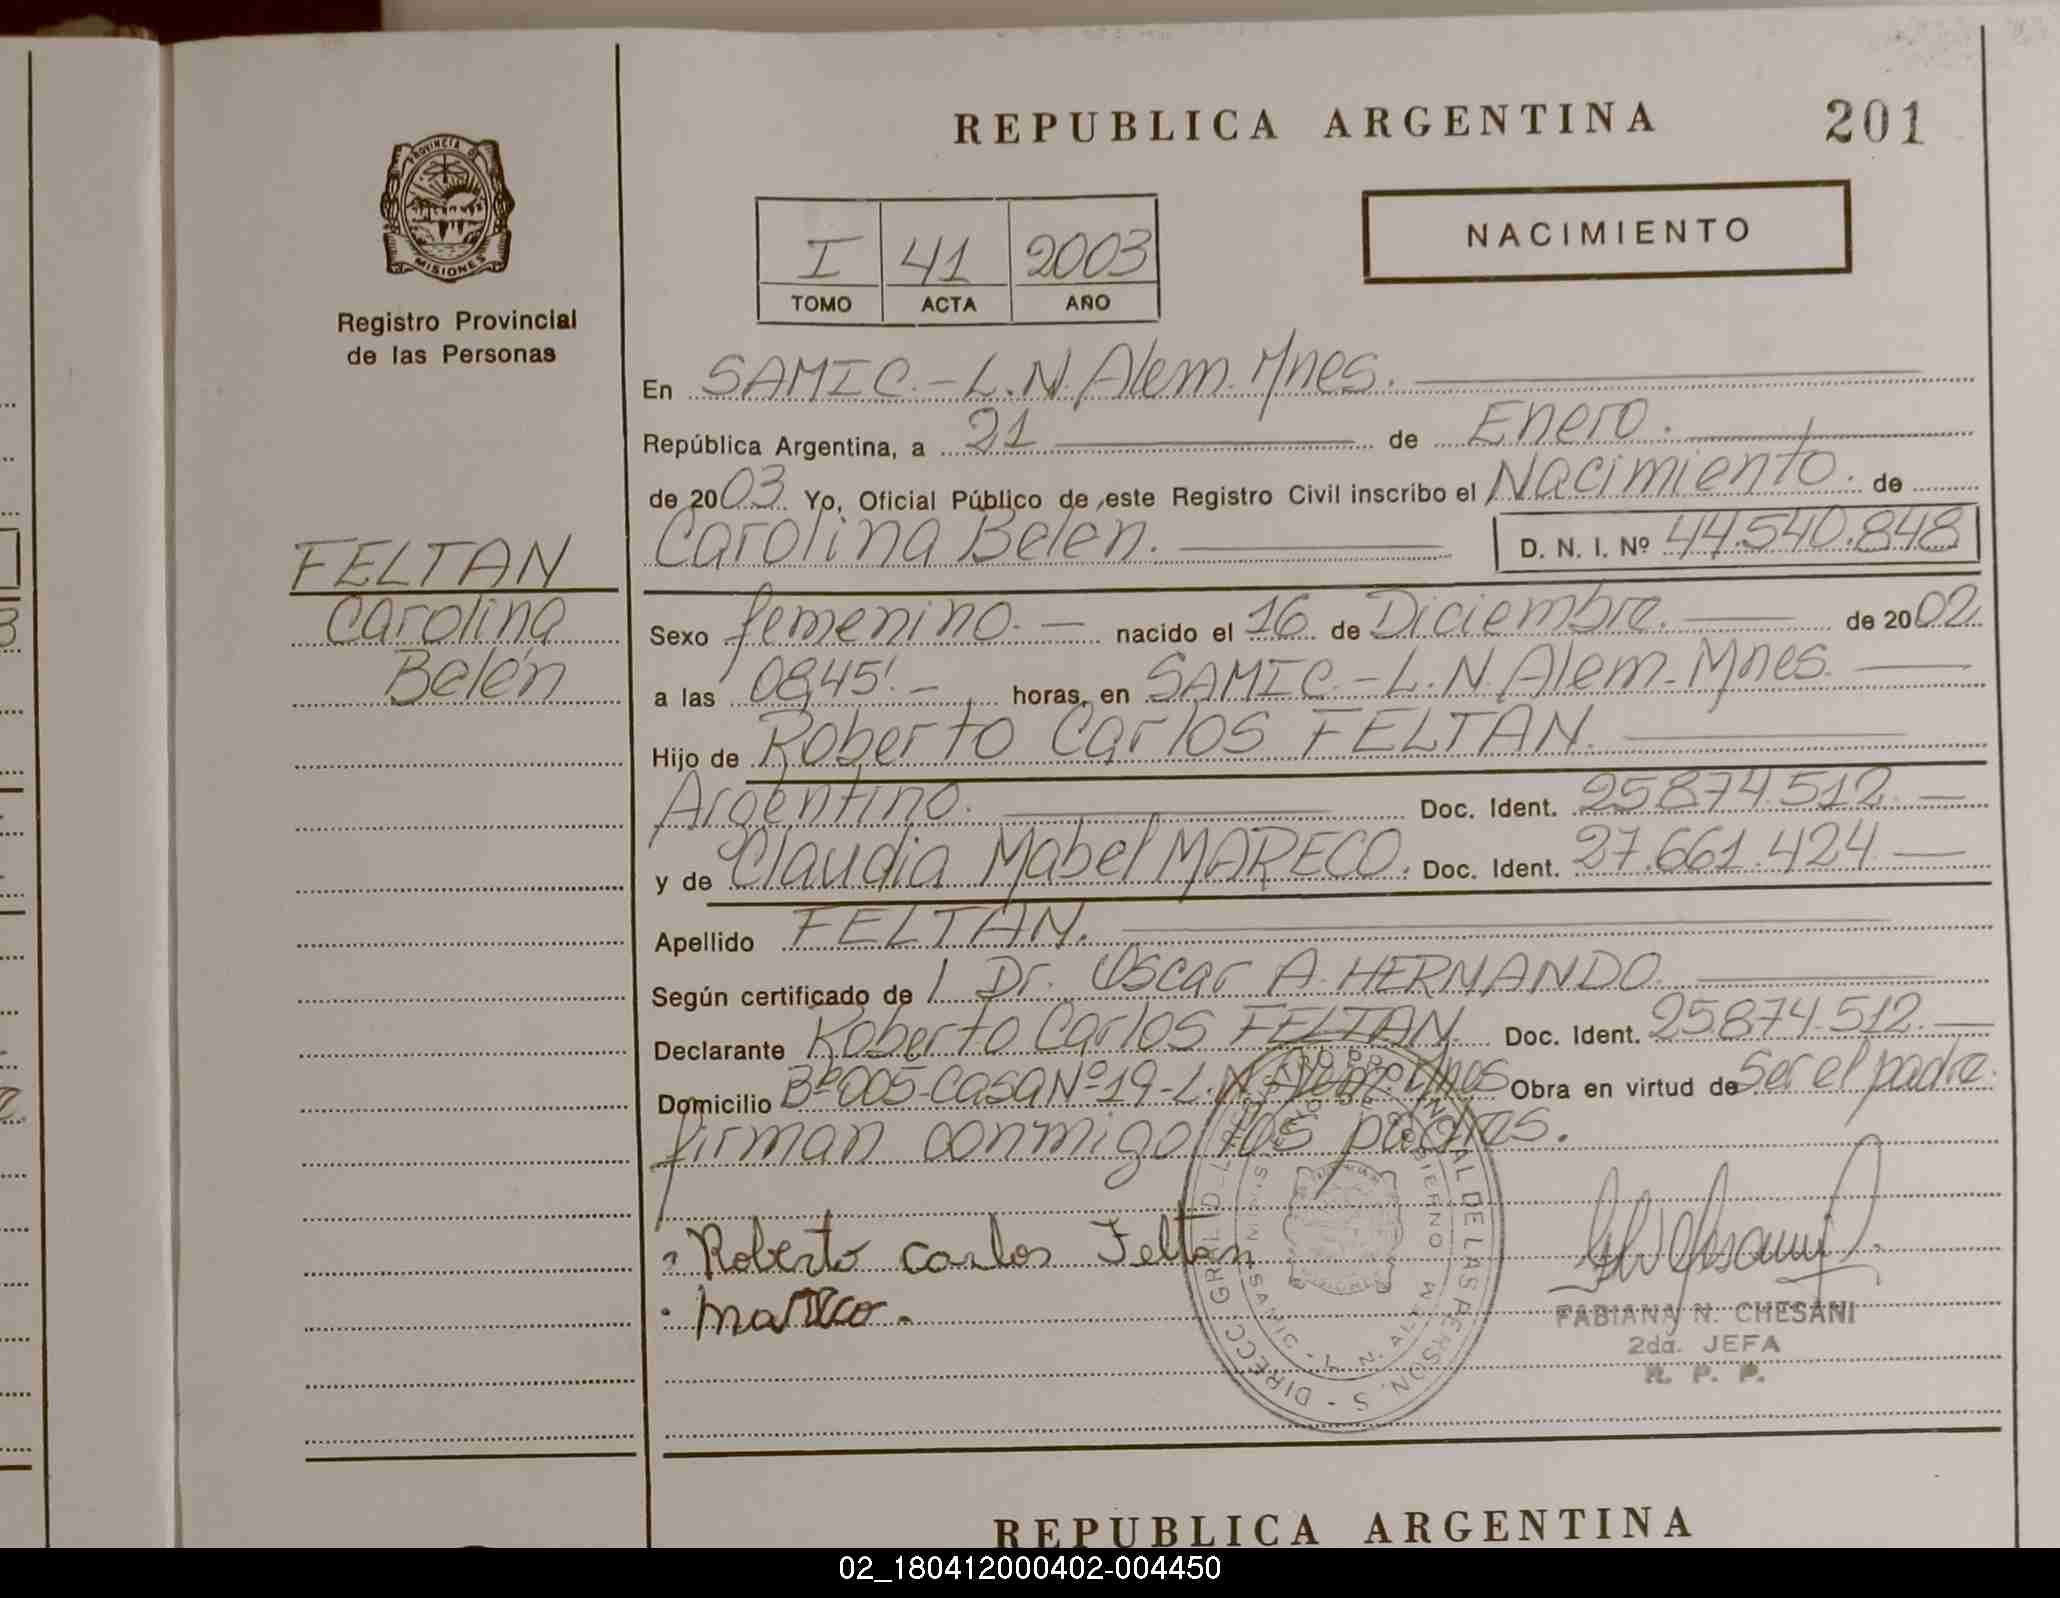 REPUBLICA ARGENTINA 201
PROVINCIA DE
MISIONES
Registro Provincial
de las Personas
NACIMIENTO
I 41 2003
TOMO ACTA AÑO
En SAMIC.-L.N.Alem.Mnes.
República Argentina, a 21 de Enero.
de 2003. Yo, Oficial Público de este Registro Civil inscribo el Nacimiento. de
Carolina Belen. D. N. I. Nº 44.540.848
FELTAN
Carolina
Belén
Sexo femenino. nacido el 16 de Diciembre. de 2002
a las 08,45'. horas, en SAMIC.-L.N.Alem.Mnes.
Hijo de Roberto Carlos FELTAN.
Argentino. Doc. Ident. 25.874.512.
y de Claudia Mabel MARECO. Doc. Ident. 27.661.424
Apellido FELTAN.
Según certificado de 1 Dr. Oscar A. HERNANDO.
Declarante Roberto Carlos FELTAN. Doc. Ident. 25.874.512.
Domicilio Bº005-Casa Nº19-L.N.Alem.Mnes Obra en virtud de Ser el padre.
firman conmigo los padres.
Roberto Carlos Feltan
Mareco.
FABIANA N. CHESANI
2da. JEFA
R. P. P.
REPUBLICA ARGENTINA
02_180412000402-004450